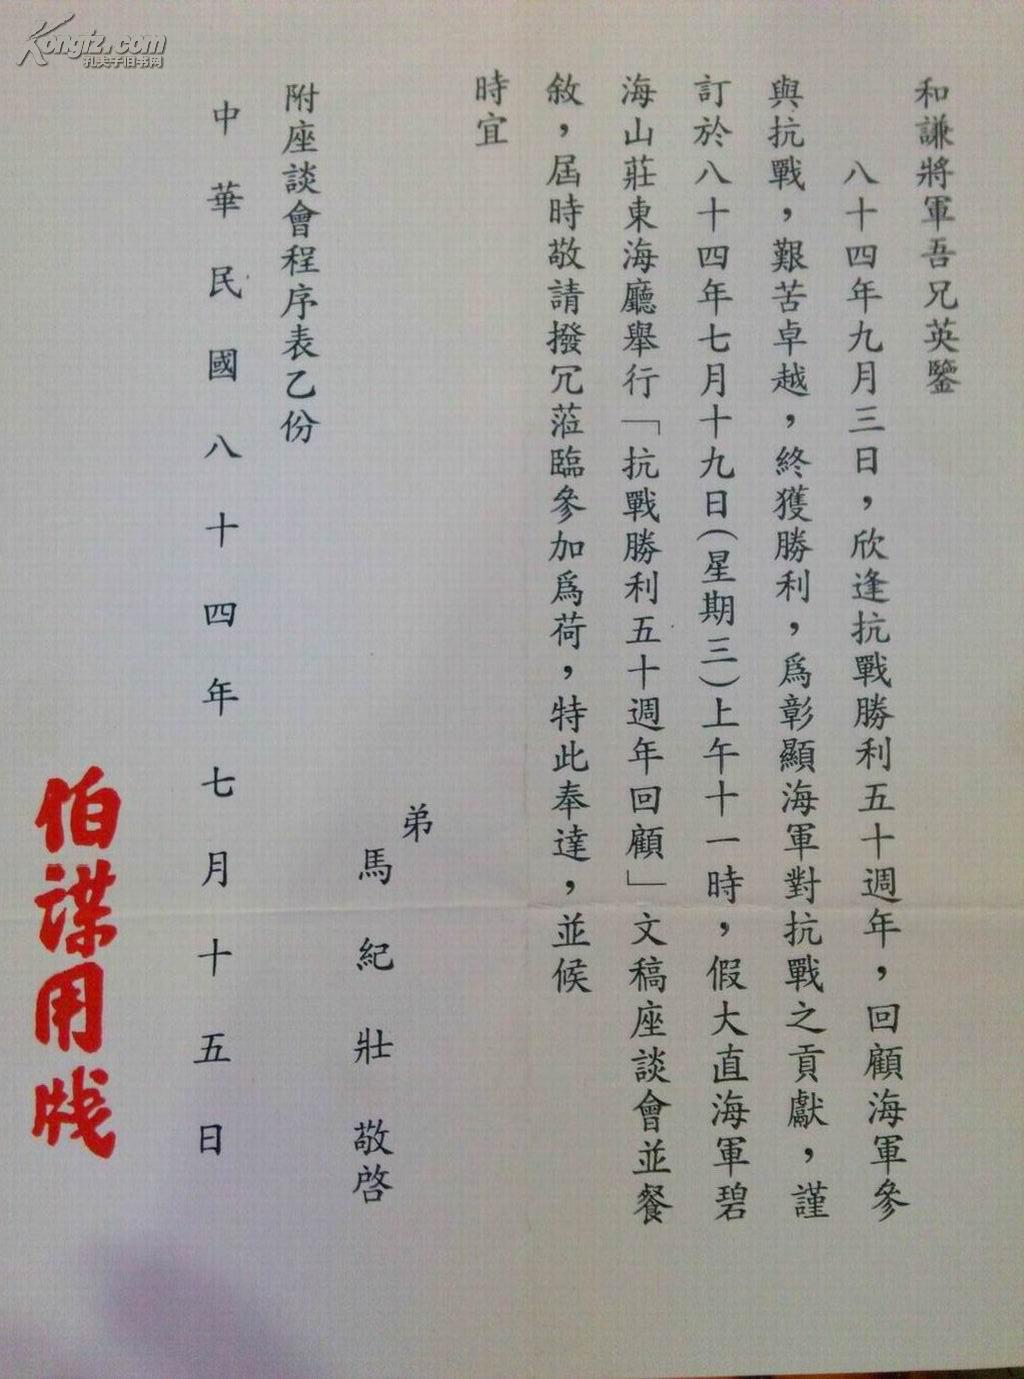 Kongfz.com
孔夫子旧书网
和謙將軍吾兄英鑒
八十四年九月三日，欣逢抗戰勝利五十週年，回顧海軍參
與抗戰，艱苦卓越，終獲勝利，為彰顯海軍對抗戰之貢獻，謹
訂於八十四年七月十九日(星期三)上午十一時，假大直海軍碧
海山莊東海廳舉行「抗戰勝利五十週年回顧」文稿座談會並餐
敘，屆時敬請撥冗蒞臨參加為荷，特此奉達，並候
時宜
弟
馬紀壯敬啓
附座談會程序表乙份
中華民國八十四年七月十五日
伯謀用牋